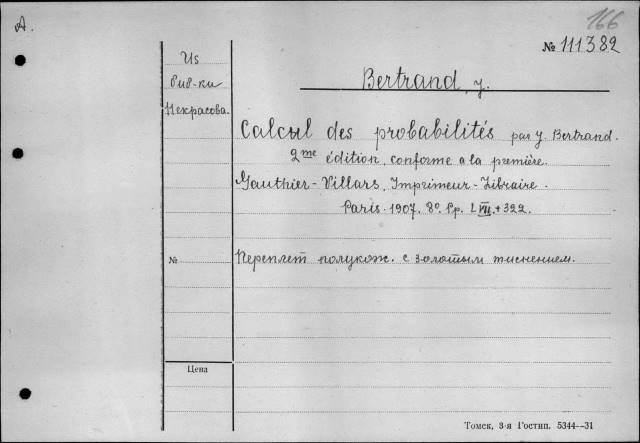 A.
166
№ 111382
Из
биб-ки
Некрасова.
Bertrand, J.
Calcul des probabilités par J. Bertrand.
2me édition, conforme a la première.
Gauthier-Villars, Imprimeur-Libraire.
Paris. 1907. 8º. Pp. LVII.+322.
№
Переплет полукож. с золотым тиснением.
Цена
Томск, 3-я Гостип. 5344—31